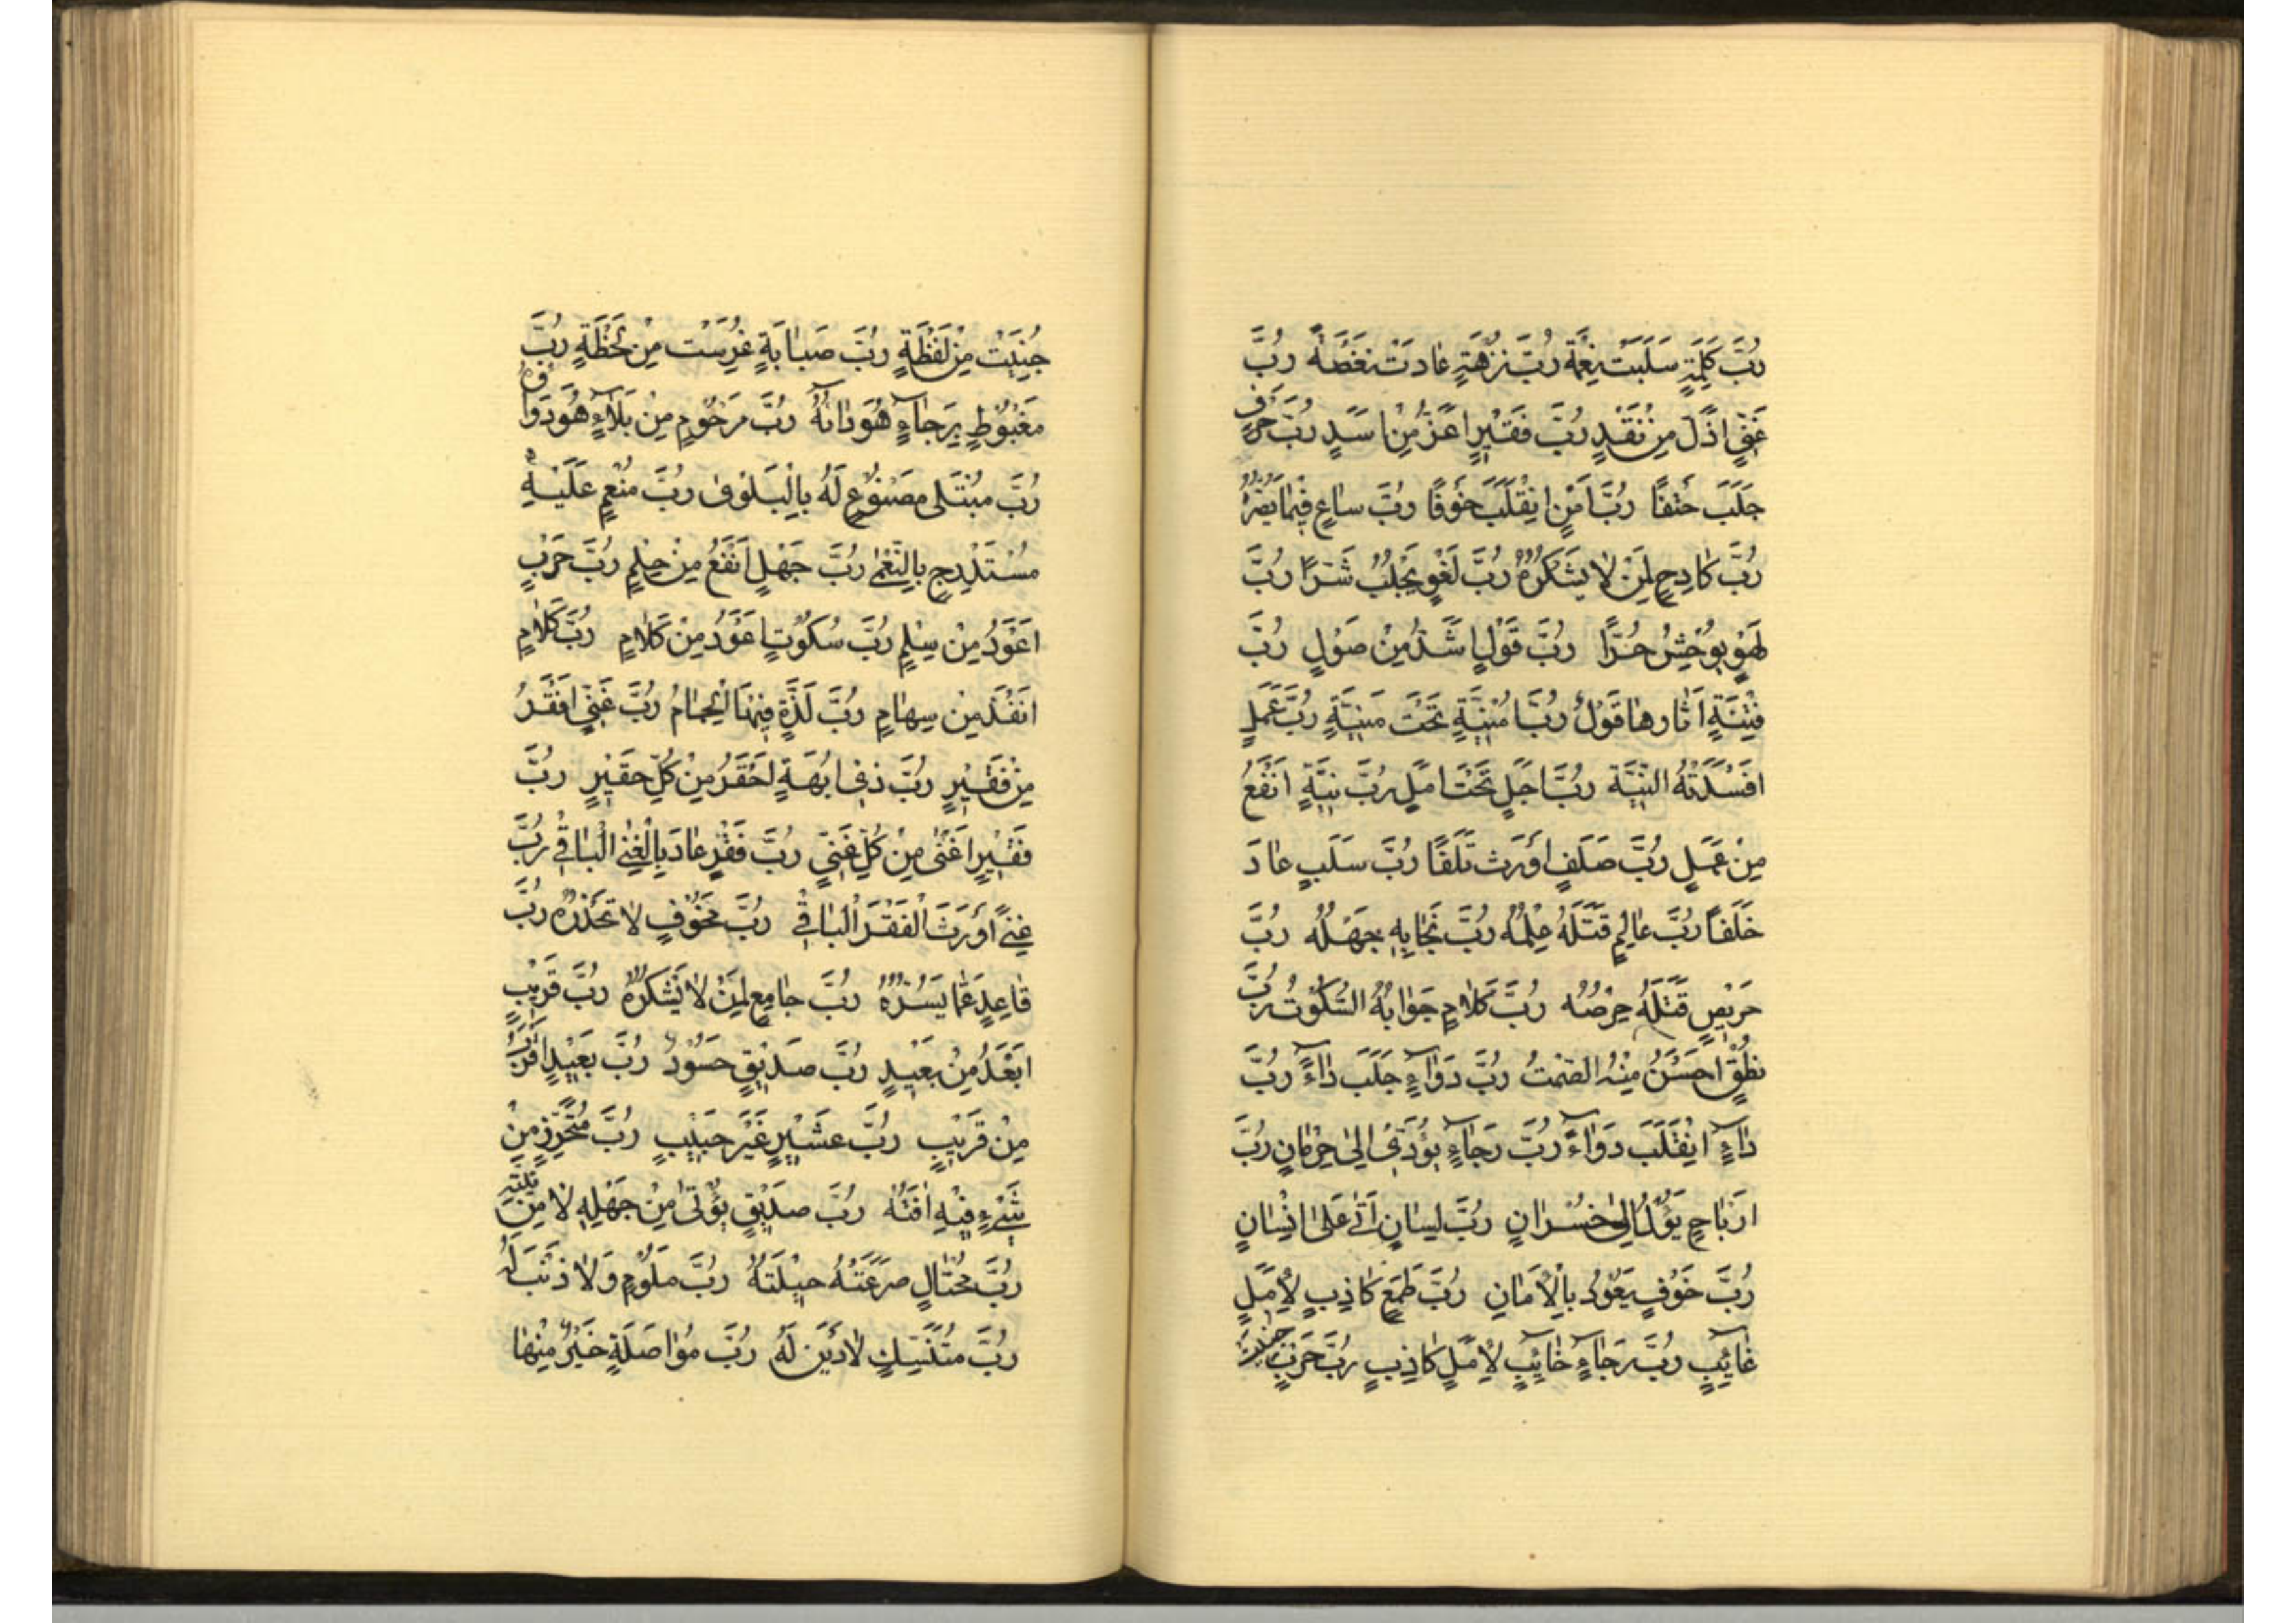 رُبَّ كَلِمَةٍ سَلَبَتْ نِعْمَةً رُبَّ نُزْهَةٍ عٰادَتْ نُغْصَةً رُبَّ
غَنِيٍّ اَذَلَّ مِنْ نَقَدٍ رُبَّ فَقيْرٍ اَعَزُّ مِنْ اَسَدٍ رُبَّ حَرْفٍ
جَلَبَ حَتْفًا رُبَّ اَمْنٍ اِنْقَلَبَ خَوْفًا رُبَّ ساعٍ فِيْمٰا يَضُرُّهُ
رُبَّ كٰادِحٍ لِمَنْ لٰا يَشْكُرُهُ رُبَّ لَغْوٍ يَجْلِبُ شَرًّا رُبَّ
لَهْوٍ يُوْحِشُ حُرًّا رُبَّ قَوْلٍ اَشَدُّ مِنْ صَوْلٍ رُبَّ
فِتْنَةٍ اَثٰارهٰا قَوْلٌ رُبَّ اُمْنِيَّةٍ تَحْتَ مَنِيَّةٍ رُبَّ عَمَلٍ
اَفْسَدَتْهُ النِّيَّة رُبَّ اَجَلٍ تَحْتَ اَمَلٍ رُبَّ نِيَّةٍ اَنْفَعُ
مِنْ عَمَلٍ رُبَّ صَلَفٍ اَوْرَث تَلَفًا رُبَّ سَلَبٍ عٰادَ
خَلَفًا رُبَّ عالِمٍ قَتَلَهُ عِلْمُهُ رُبَّ نَجٰا بِهِ جَهْلُهُ رُبَّ
حَرِيْصٍ قَتَلَهُ حِرْصُهُ رُبَّ كَلٰامٍ جَوٰابُهُ السُّكُوْتُ رُبَّ
نُطْقٍ اَحْسَنُ مِنْهُ الصَّمْتُ رُبَّ دَوٰاءٍ جَلَبَ دٰاءً رُبَّ
دٰاءٍ اِنْقَلَبَ دَوٰاءً رُبَّ رَجٰاءٍ يُؤَدّيْ اِلىٰ حِرْمٰانٍ رُبَّ
اَرْبٰاحٍ يَؤُلُ اِلىٰ خُسْرٰانٍ رُبَّ لِسٰانٍ اَتىٰ عَلىٰ اِنْسٰانٍ
رُبَّ خَوْفٍ يَعُوْدُ بِالْاَمٰانِ رُبَّ طَمَعٍ كٰاذِبٍ لِاَمَلٍ
غٰائِبٍ رُبَّ رَجٰاءٍ خٰائِبٍ لِاَمَلٍ كٰاذِبٍ رُبَّ حَرْبٍ
جُنِيَتْ مِنْ لَفْظَةٍ رُبَّ صَبٰابَةٍ غُرِسَتْ مِنْ لَحْظَةٍ رُبَّ
مَغْبُوْطٍ بِرَجٰاءٍ هُوَ دٰائُهُ رُبَّ مَرْحُوْمٍ مِنْ بَلٰاءٍ هُوَ دَوٰاؤُهُ
رُبَّ مُبْتَلى مَصْنُوْعٍ لَهُ بِالْبَلْوىٰ رُبَّ مُنْعَمٍ عَلَيْهِ
مُسْتَدْرِجٍ بِالنُّعْمٰى رُبَّ جَهْلٍ اَنْفَعُ مِنْ حِلْمٍ رُبَّ حَرْبٍ
اَعْوَدُ مِنْ سِلْمٍ رُبَّ سُكُوْتٍ اَعْوَدُ مِنْ كَلٰامٍ رُبَّ كَلٰامٍ
اَنْفَذُ مِنْ سِهٰامٍ رُبَّ لَذَّةٍ فِيْهَا الْحِمٰامُ رُبَّ غَنِيٍّ اَفْقَرُ
مِنْ فَقيْرٍ رُبَّ ذيْ اُبُهَّةٍ اَحْقَرُ مِنْ كُلِّ حَقيْرٍ رُبَّ
فَقيْرٍ اَغْنىٰ مِنْ كُلِّ غَنِيٍّ رُبَّ فَقْرٍ عٰادَ بِالْغِنَى الْبٰاقيْ رُبَّ
غِنىً اَوْرَثَ الْفَقْرَ الْبٰاقيْ رُبَّ مَخُوْفٍ لٰا تَحْذَرُهُ رُبَّ
قٰاعِدٍ عَمّٰا يَسُرُّهُ رُبَّ جٰامِعٍ لِمَنْ لٰا يَشْكُرُهُ رُبَّ قَرِيْبٍ
اَبْعَدُ مِنْ بَعيْدٍ رُبَّ صَديْقٍ حَسُوْدٌ رُبَّ بَعيْدٍ اَقْرَبُ
مِنْ قَريْبٍ رُبَّ عَشيْرٍ غَيْرِ حَبيْبٍ رُبَّ مُتَحَرِّزٍ مِنْ
شَيْءٍ فيْهِ اٰفَتُهُ رُبَّ صَديْقٍ يُؤْتىٰ مِنْ جَهْلِهِ لٰا مِنْ نِيَّتِهِ
رُبَّ مُحْتٰالٍ صَرَعَتْهُ حيْلَتُهُ رُبَّ مَلُوْمٍ وَلٰا ذَنْبَ لَهُ
رُبَّ مُتَنَسِّكٍ لٰا دَيْنَ لَهُ رُبَّ مُوٰاصَلَةٍ خَيْرٌ مِنْهٰا